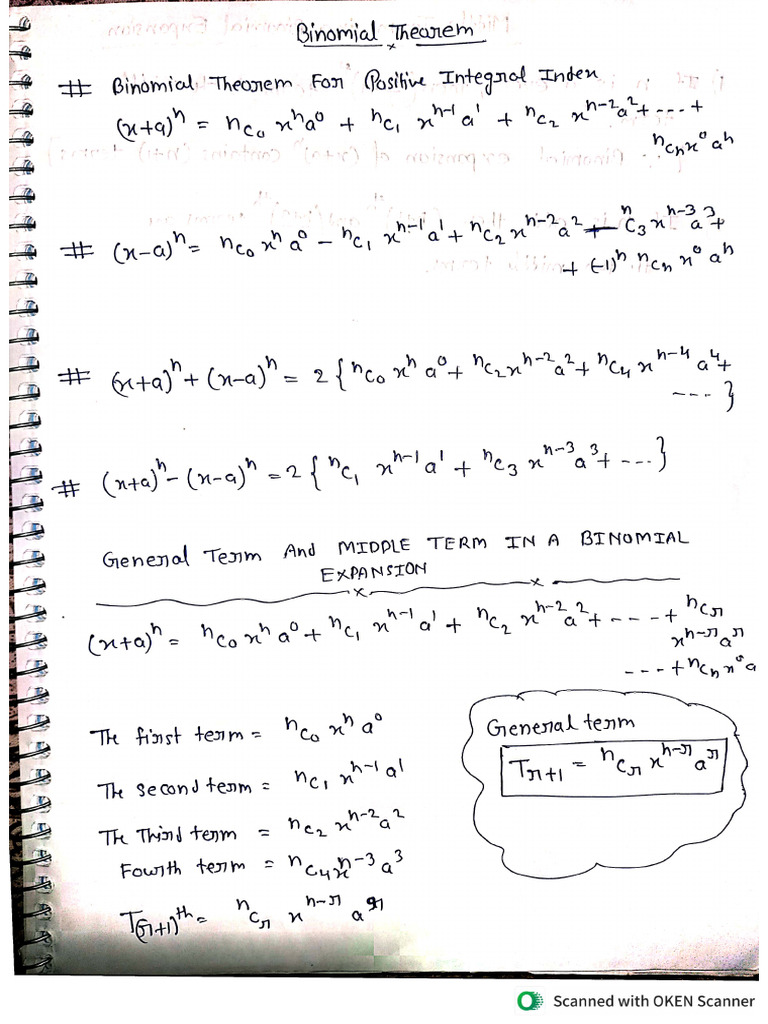 Binomial Theorem
# Binomial Theorem For Positive Integral Index
(x+a)ⁿ = ⁿC₀ xⁿa⁰ + ⁿC₁ xⁿ⁻¹ a¹ + ⁿC₂ xⁿ⁻²a² + ---- +
ⁿCₙx⁰aⁿ
# (x-a)ⁿ = ⁿC₀ xⁿ a⁰ - ⁿC₁ xⁿ⁻¹a¹ + ⁿC₂xⁿ⁻²a² - ⁿC₃xⁿ⁻³a³+
+ (-1)ⁿ ⁿCₙ x⁰ aⁿ
# (x+a)ⁿ + (x-a)ⁿ = 2 { ⁿC₀ xⁿ a⁰ + ⁿC₂xⁿ⁻²a² + ⁿC₄ xⁿ⁻⁴ a⁴+
---- }
# (x+a)ⁿ - (x-a)ⁿ = 2 { ⁿC₁ xⁿ⁻¹a¹ + ⁿC₃ xⁿ⁻³a³ + ---- }
General Term And MIDDLE TERM IN A BINOMIAL
EXPANSION
(x+a)ⁿ = ⁿC₀xⁿa⁰ + ⁿC₁ xⁿ⁻¹a¹ + ⁿC₂ xⁿ⁻²a² + ---- + ⁿCᵣ
xⁿ⁻ʳaʳ
---- + ⁿCₙx⁰a
The first term = ⁿC₀ xⁿ a⁰
The second term = ⁿC₁ xⁿ⁻¹a¹
The Third term = ⁿC₂ xⁿ⁻²a²
Fourth term = ⁿC₄xⁿ⁻³a³
T(r+1)ᵗʰ = ⁿCᵣ xⁿ⁻ʳ aʳ
General term
Tᵣ₊₁ = ⁿCᵣ xⁿ⁻ʳaʳ
Scanned with OKEN Scanner